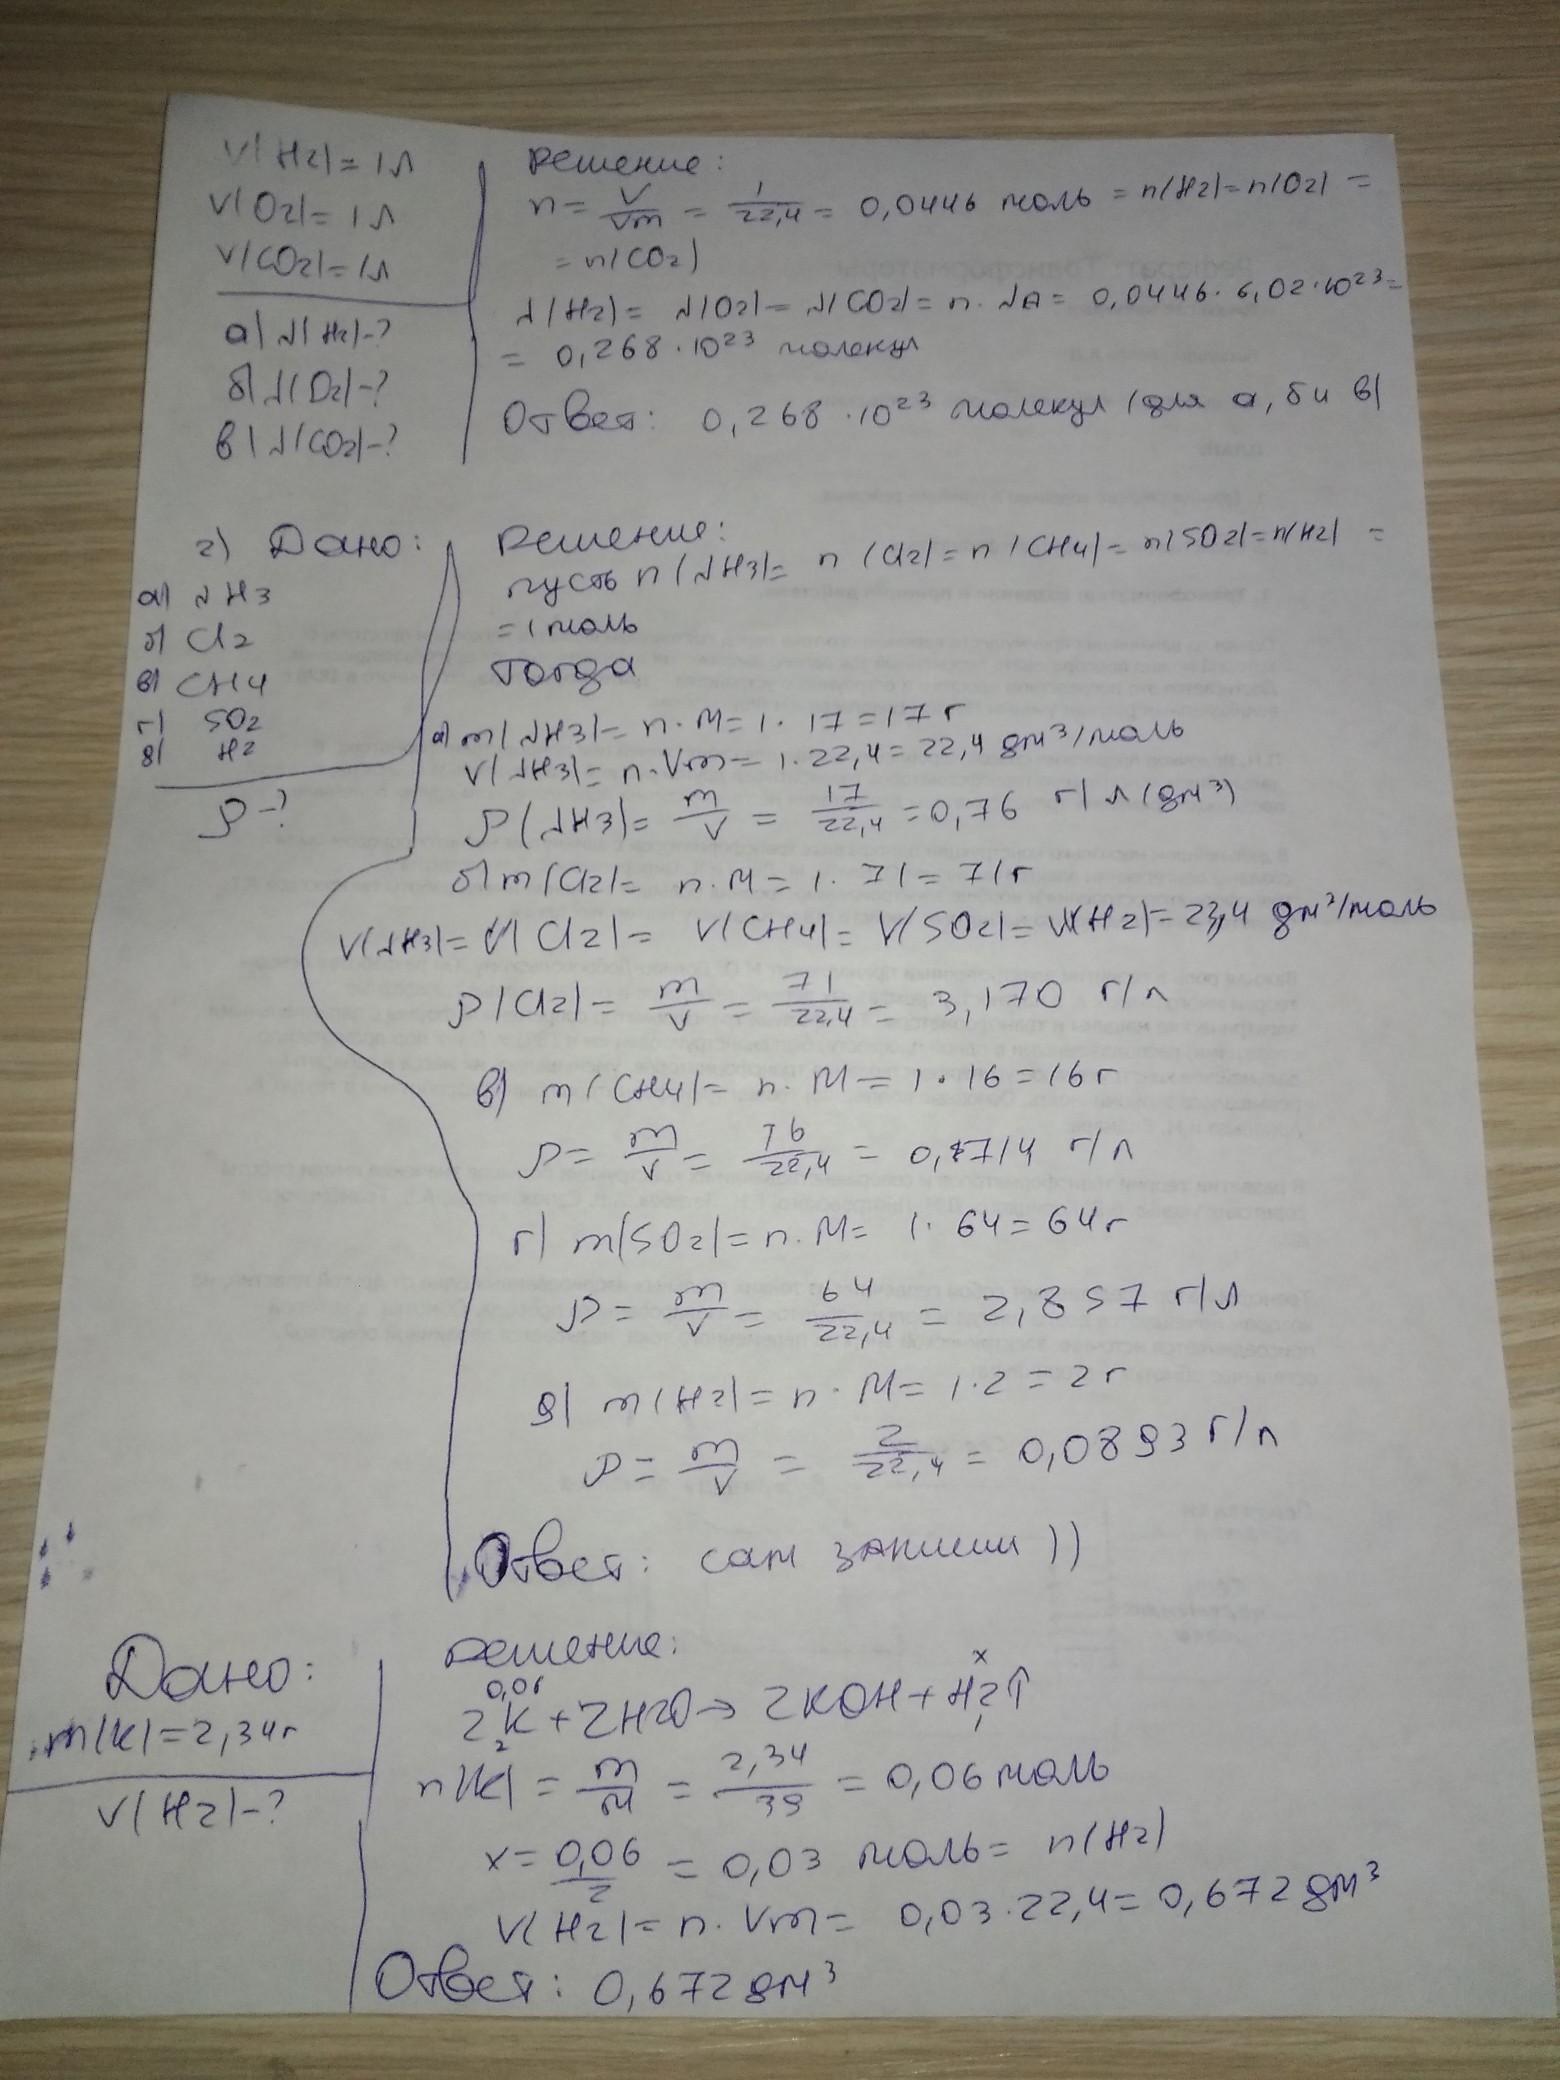 V(H2)= 1л
V(O2)= 1л
V(CO2)= 1л
а) N(H2)-?
б) N(O2)-?
в) N(CO2)-?
Решение:
n= V/Vm = 1/22,4 = 0,0446 моль = n(H2)=n(O2) =
= n(CO2)
N(H2)= N(O2)= N(CO2)= n·NA= 0,0446·6,02·10²³=
= 0,268·10²³ молекул
Ответ: 0,268·10²³ молекул (для а, б и в)
2) Дано:
а) NH3
б) Cl2
в) CH4
г) SO2
д) H2
ρ-?
Решение:
пусть n(NH3)= n(Cl2)= n(CH4)= n(SO2)=n(H2) =
= 1 моль
тогда
а) m(NH3)= n·M= 1·17=17 г
V(NH3)= n·Vm= 1·22,4=22,4 дм³/моль
ρ(NH3)= m/V = 17/22,4 =0,76 г/л (дм³)
б) m(Cl2)= n·M= 1·71= 71г
V(NH3)= V(Cl2)= V(CH4)= V(SO2)= V(H2)=22,4 дм³/моль
ρ(Cl2)= m/V = 71/22,4 = 3,170 г/л
в) m(CH4)= n·M= 1·16=16г
ρ= m/V = 16/22,4 = 0,714 г/л
г) m(SO2)=n·M= 1·64=64г
ρ= m/V = 64/22,4 = 2,857 г/л
д) m(H2)= n·M= 1·2=2г
ρ= m/V = 2/22,4 = 0,0893 г/л
Ответ: сам запиши ))
Дано:
m(K)=2,34г
V(H2)-?
Решение:
0,06 x
2K+2H2O→2KOH+H2↑
2 1
n(K) = m/M = 2,34/39 = 0,06 моль
x= 0,06/2 = 0,03 моль= n(H2)
V(H2)= n·Vm= 0,03·22,4= 0,672 дм³
Ответ: 0,672 дм³